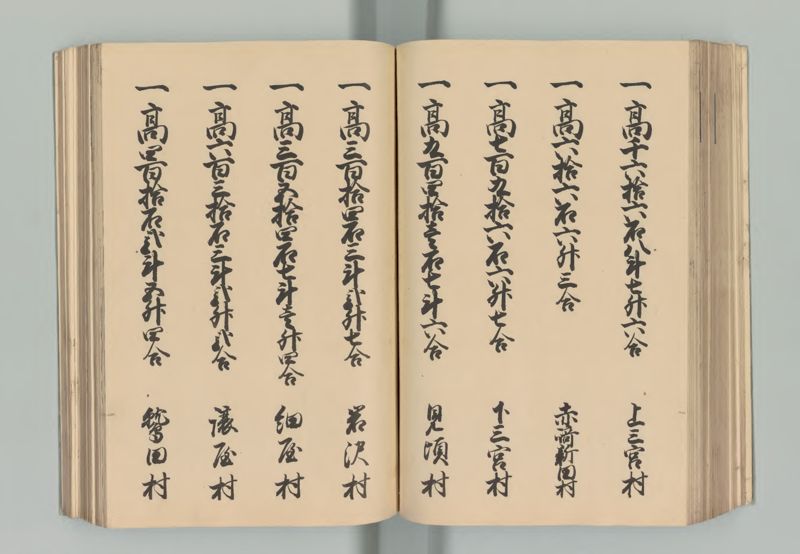 一高千六拾六石八斗七升六合 上三宮村
一高六拾六石六升三合 赤崎新田村
一高七百九拾六石六升七合 下三宮村
一高九百四拾壱石七斗六合 見頃村
一高三百拾四石三斗弐升七合 岩沢村
一高三百五拾四石七斗壱升四合 細屋村
一高六百三拾石三斗弐升弐合 譲屋村
一高四百拾石弐斗五升四合 鷲田村